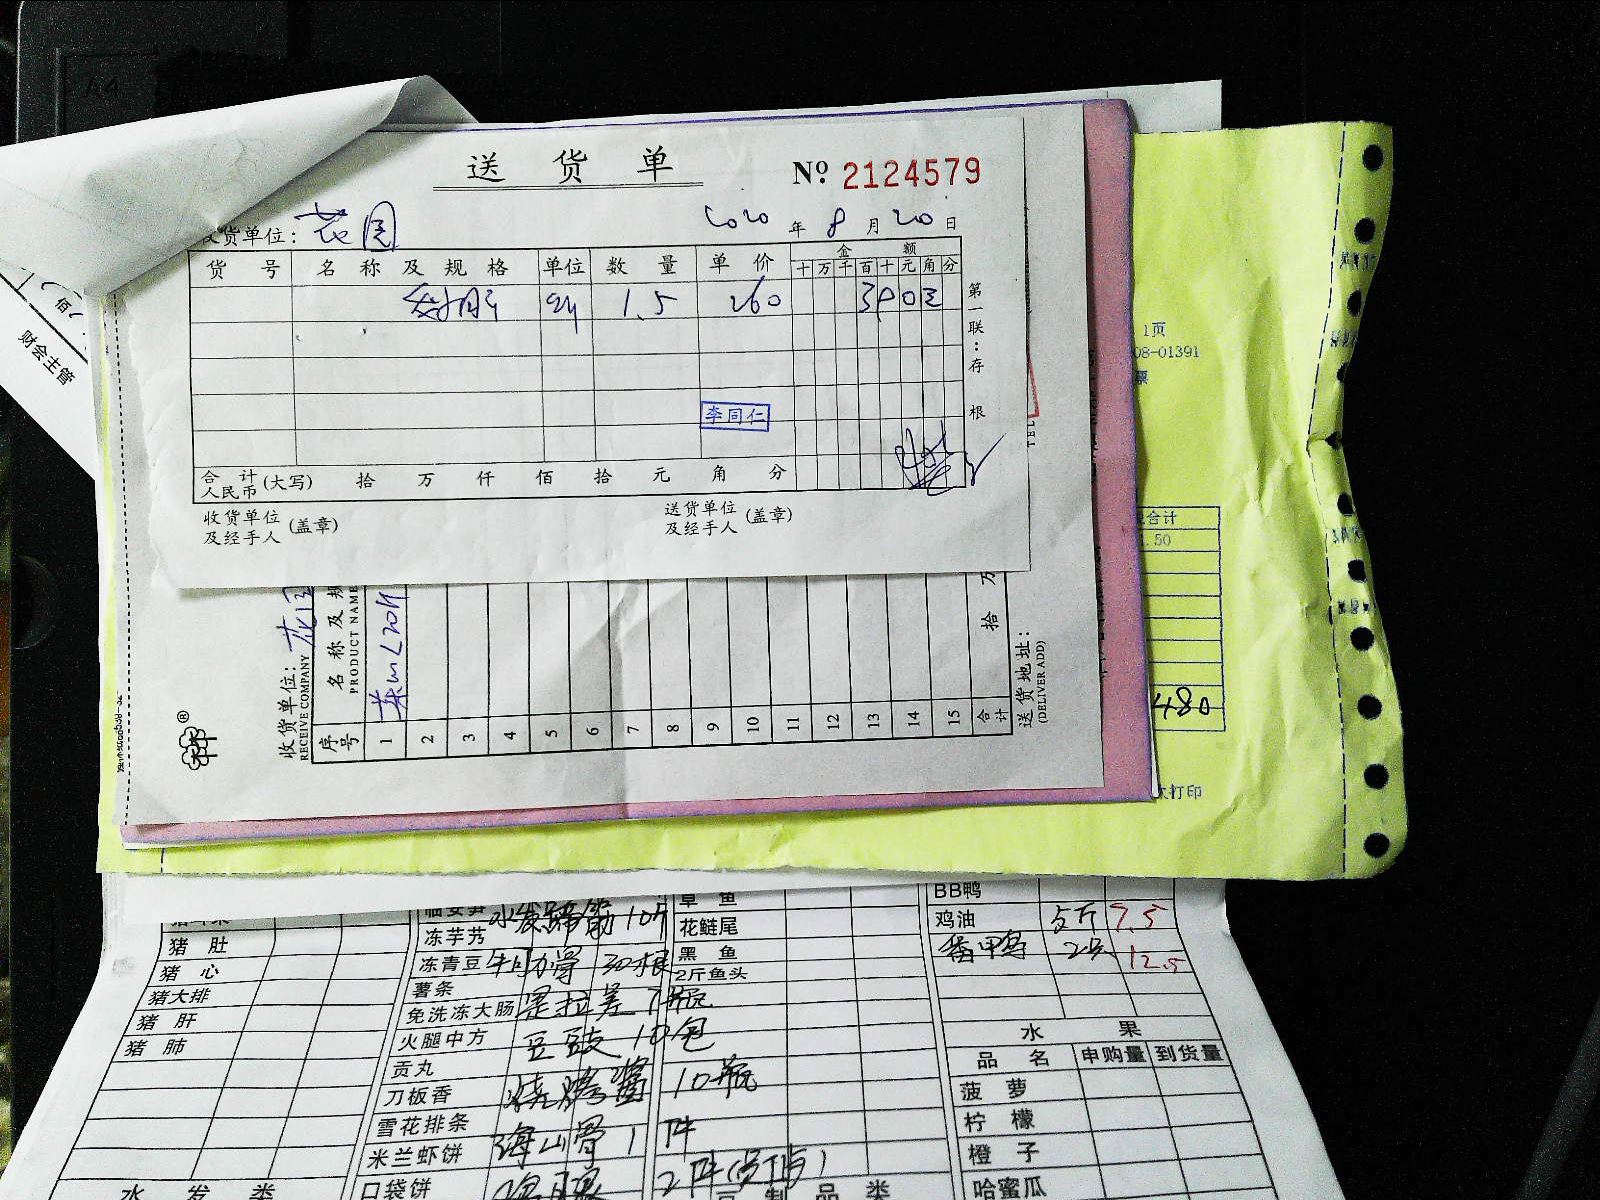 送货单
№ 2124579
收货单位: 花园
2020年8月20日
货号 名称及规格 单位 数量 单价 金额
十万千百十元角分
1.5 260
第一联:存根
李同仁
合计人民币(大写) 拾 万 仟 佰 拾 元 角 分
收货单位及经手人(盖章)
送货单位及经手人(盖章)
财会主管
佰
1页
08-01391
票
合计
.50
480
打印
TEL
收货单位: 花园
RECEIVE COMPANY
序号 名称及规
PRODUCT NAME
1
2
3
4
5
6
7
8
9
10
11
12
13
14
15
合计
拾 万
送货地址:
(DELIVER ADD)
猪肚
猪心
猪大排
猪肝
猪肺
水发类
冻芋艿 水发蹄筋 10斤
冻青豆 牛肋骨 30根
薯条
免洗冻大肠
火腿中方 豆豉 10包
贡丸
刀板香 10瓶
雪花排条
米兰虾饼 1件
口袋饼 2件
草鱼
花鲢尾
黑鱼
2斤鱼头
豆制品类
BB鸭
鸡油 5斤 7.5
番鸭 2只 12.5
水果
品名 申购量 到货量
菠萝
柠檬
橙子
哈蜜瓜